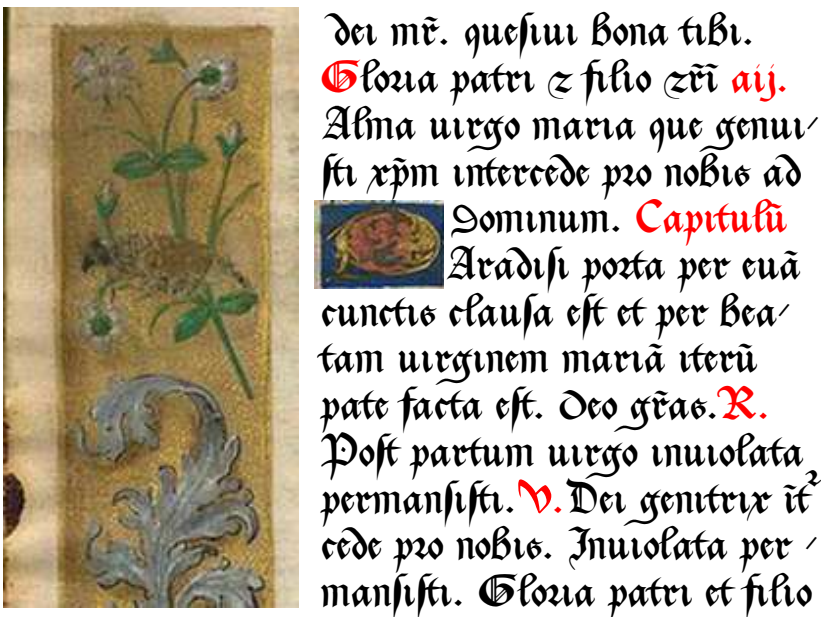 dei mr̃. quesiui bona tibi.
Gloria patri ⁊ filio ⁊r̃ı̃ aij.
Alma uirgo maria que genui⸍
sti xp̃m intercede pro nobis ad
dominum. Capitulũ
Aradisi porta per euã
cunctis clausa est et per bea⸍
tam uirginem mariã iterũ
pate facta est. Deo gr̃as. R.
Post partum uirgo inuiolata
permansisti. V. Dei genitrix ıt̃²
cede pro nobis. Inuiolata per ⸍
mansisti. Gloria patri et filio